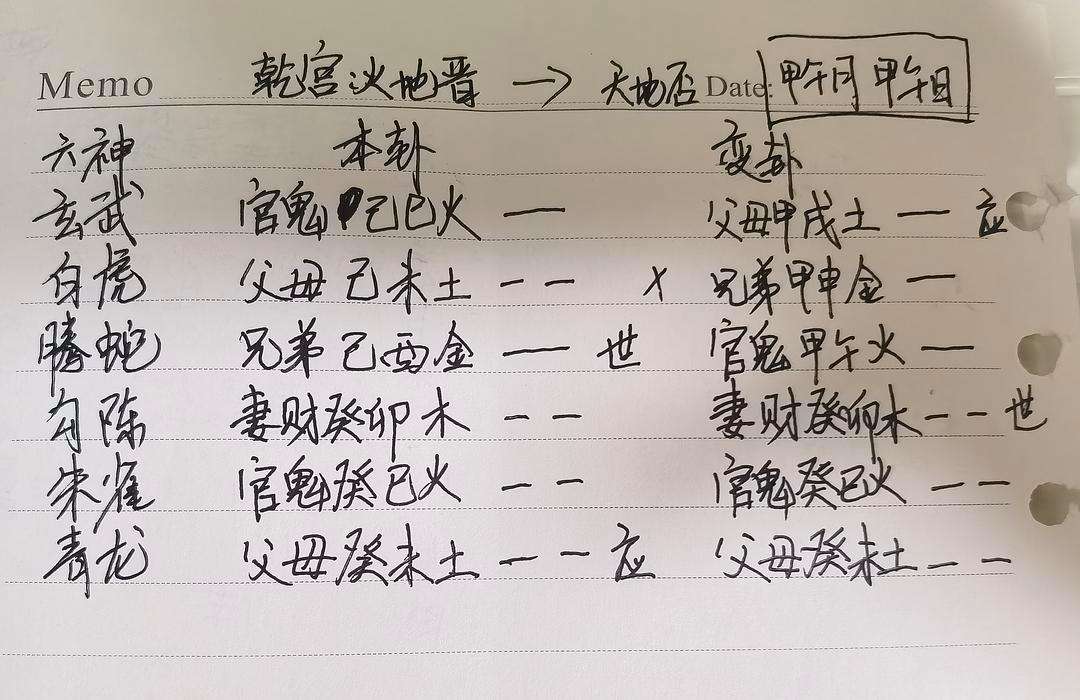 Memo 乾宫火地晋 → 天地否 Date: 甲午月 甲午日
六神 本卦 变卦
玄武 官鬼己巳火 — 父母甲戌土 — 应
白虎 父母己未土 - - x 兄弟甲申金 —
腾蛇 兄弟己酉金 — 世 官鬼甲午火 —
勾陈 妻财癸卯木 - - 妻财癸卯木 - - 世
朱雀 官鬼癸巳火 - - 官鬼癸巳火 - -
青龙 父母癸未土 - - 应 父母癸未土 - -